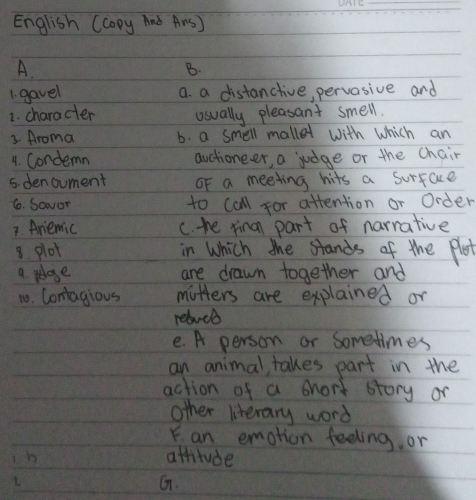 DATE
English (Copy And Ans)
A. B.
1. gavel a. a distanctive, pervasive and
2. character usually pleasant smell.
3. Aroma b. a smell mallet with which an
4. Condemn auctioneer, a judge or the chair
5. denoument of a meeting hits a surface
6. Savor to call for attention or Order
7. Ariemic c. the final part of narrative
8. plot in which the stands of the plot
9. are drawn together and
10. Contagious mutters are explained or
e. A person or Sometimes
an animal, takes part in the
action of a short story or
Other literary word
F. an emotion feeling, or
1. h attitude
2. G.